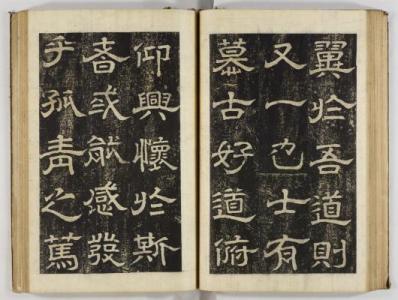 翼於吾道則
又一也士有
慕古好道俯
仰興懷於斯
者或能感發
乎孤青之篤